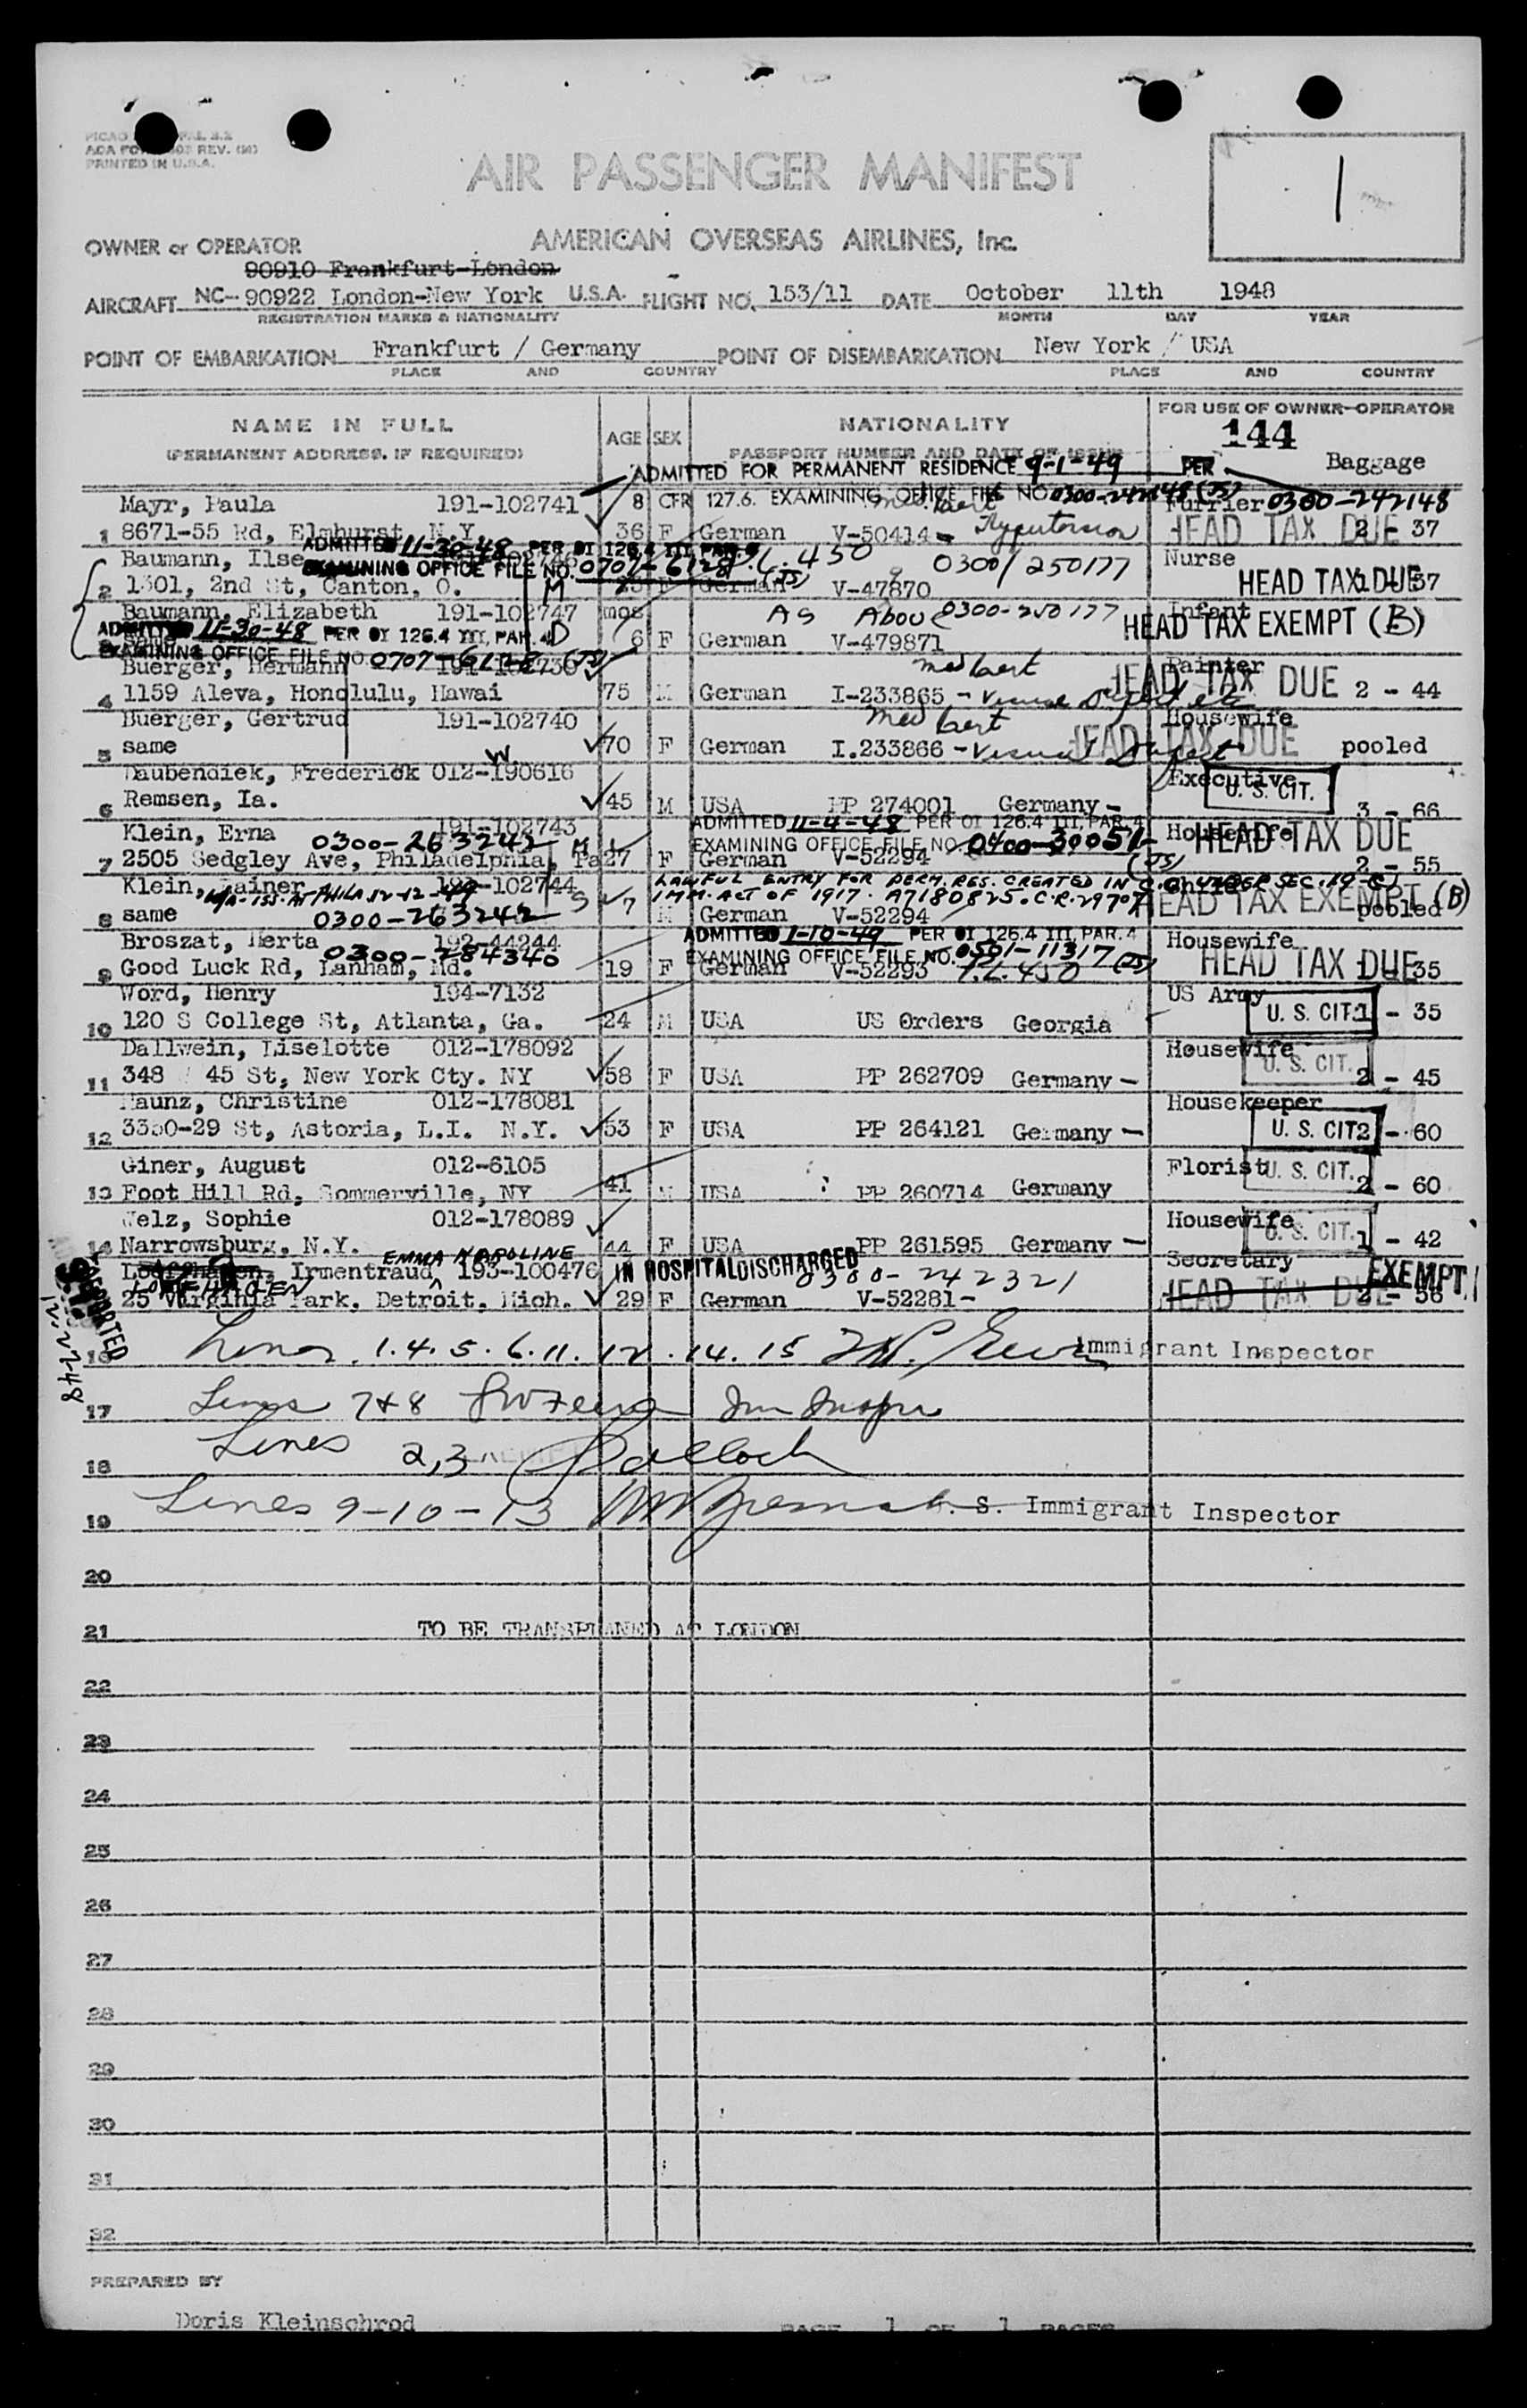 PRINTED IN U.S.A.
AIR PASSENGER MANIFEST
1
OWNER or OPERATOR AMERICAN OVERSEAS AIRLINES, Inc.
90910 Frankfurt-London
AIRCRAFT NC-90922 London-New York U.S.A. FLIGHT NO. 153/11 DATE October 11th 1948
REGISTRATION MARKS & NATIONALITY MONTH DAY YEAR
POINT OF EMBARKATION Frankfurt / Germany POINT OF DISEMBARKATION New York / USA
PLACE AND COUNTRY PLACE AND COUNTRY
NAME IN FULL AGE SEX NATIONALITY FOR USE OF OWNER-OPERATOR
(PERMANENT ADDRESS, IF REQUIRED) PASSPORT NUMBER AND DATE OF ISSUE 144 Baggage
ADMITTED FOR PERMANENT RESIDENCE 9-1-49 PER
Mayr, Paula 191-102741 8 CFR 127.6. EXAMINING OFFICE FILE NO. 0300-242148 (JS) Furrier 0300-242148
med cert
1 8671-55 Rd, Elmhurst, N.Y. 36 F German V-50414 - Hypertension HEAD TAX DUE 2 37
Baumann, Ilse ADMITTED 11-30-48 PER OI 126.4 III, PAR. 4 Nurse
EXAMINING OFFICE FILE NO. 0707-6128 (JS) 450 0300/250177
2 1301, 2nd St, Canton, O. M F German V-47870 HEAD TAX DUE 37
Baumann, Elizabeth 191-102747 mos As Above 0300-250177 Infant
ADMITTED 11-30-48 PER OI 126.4 III, PAR. 4 HEAD TAX EXEMPT (B)
3 same 6 F German V-479871
EXAMINING OFFICE FILE NO. 0707-6128 (JS)
Buerger, Hermann med cert Painter
4 1159 Aleva, Honolulu, Hawai 75 M German I-233865 - HEAD TAX DUE 2 - 44
Buerger, Gertrud 191-102740 med cert Housewife
5 same 70 F German I.233866 - Visual Defect HEAD TAX DUE pooled
W
Daubendiek, Frederick 012-190616 Executive U.S. CIT.
6 Remsen, Ia. 45 M USA PP 274001 Germany - 3 - 66
191-102743 ADMITTED 11-4-48 PER OI 126.4 III, PAR. 4
Klein, Erna 0300-263242 EXAMINING OFFICE FILE NO. 0400-30051 (JS) Housewife HEAD TAX DUE
7 2505 Sedgley Ave, Philadelphia, Pa 27 F German V-52294 2 - 55
Klein, Rainer 191-102744 LAWFUL ENTRY FOR PERM. RES. CREATED IN C.O. UNDER SEC. 19 (C)
IMM. ACT OF 1917. A7180825. C.R. 29707 HEAD TAX EXEMPT (B)
8 same 0300-263242 S 7 M German V-52294 pooled
Broszat, Herta 192-44244 ADMITTED 1-10-49 PER OI 126.4 III, PAR. 4 Housewife
0300-284340 EXAMINING OFFICE FILE NO. 0501-11317 (JS) HEAD TAX DUE
9 Good Luck Rd, Lanham, Md. 19 F German V-52293 35
Word, Henry 194-7132 US Army
10 120 S College St, Atlanta, Ga. 24 M USA US Orders Georgia U. S. CIT. 1 - 35
Dallwein, Liselotte 012-178092 Housewife U. S. CIT.
11 348 45 St, New York Cty. NY 58 F USA PP 262709 Germany - 2 - 45
Maunz, Christine 012-178081 Housekeeper
12 3350-29 St, Astoria, L.I. N.Y. 53 F USA PP 264121 Germany - U. S. CIT. 2 - 60
Giner, August 012-6105 Florist U. S. CIT.
13 Foot Hill Rd, Sommerville, NY 41 M USA PP 260714 Germany 2 - 60
Welz, Sophie 012-178089 Housewife U. S. CIT.
14 Narrowsburg, N.Y. 44 F USA PP 261595 Germany - 1 - 42
EMMA KAROLINE
Irmentraud, 193-100476 IN HOSPITAL DISCHARGED 0300-242321 Secretary EXEMPT
25 Virginia Park, Detroit, Mich. 29 F German V-52281 - HEAD TAX DUE 2 - 56
DEPORTED
16 Lines 1. 4. 5. 6. 11. 12. 14. 15 Immigrant Inspector
17 Lines 7 & 8
18 Lines 2,3 Pollock
19 Lines 9-10-13 U. S. Immigrant Inspector
20
21 TO BE TRANSPLANED AT LONDON
22
23
24
25
26
27
28
29
30
31
32
PREPARED BY
Doris Kleinschrod
PAGE 1 OF 1 PAGES